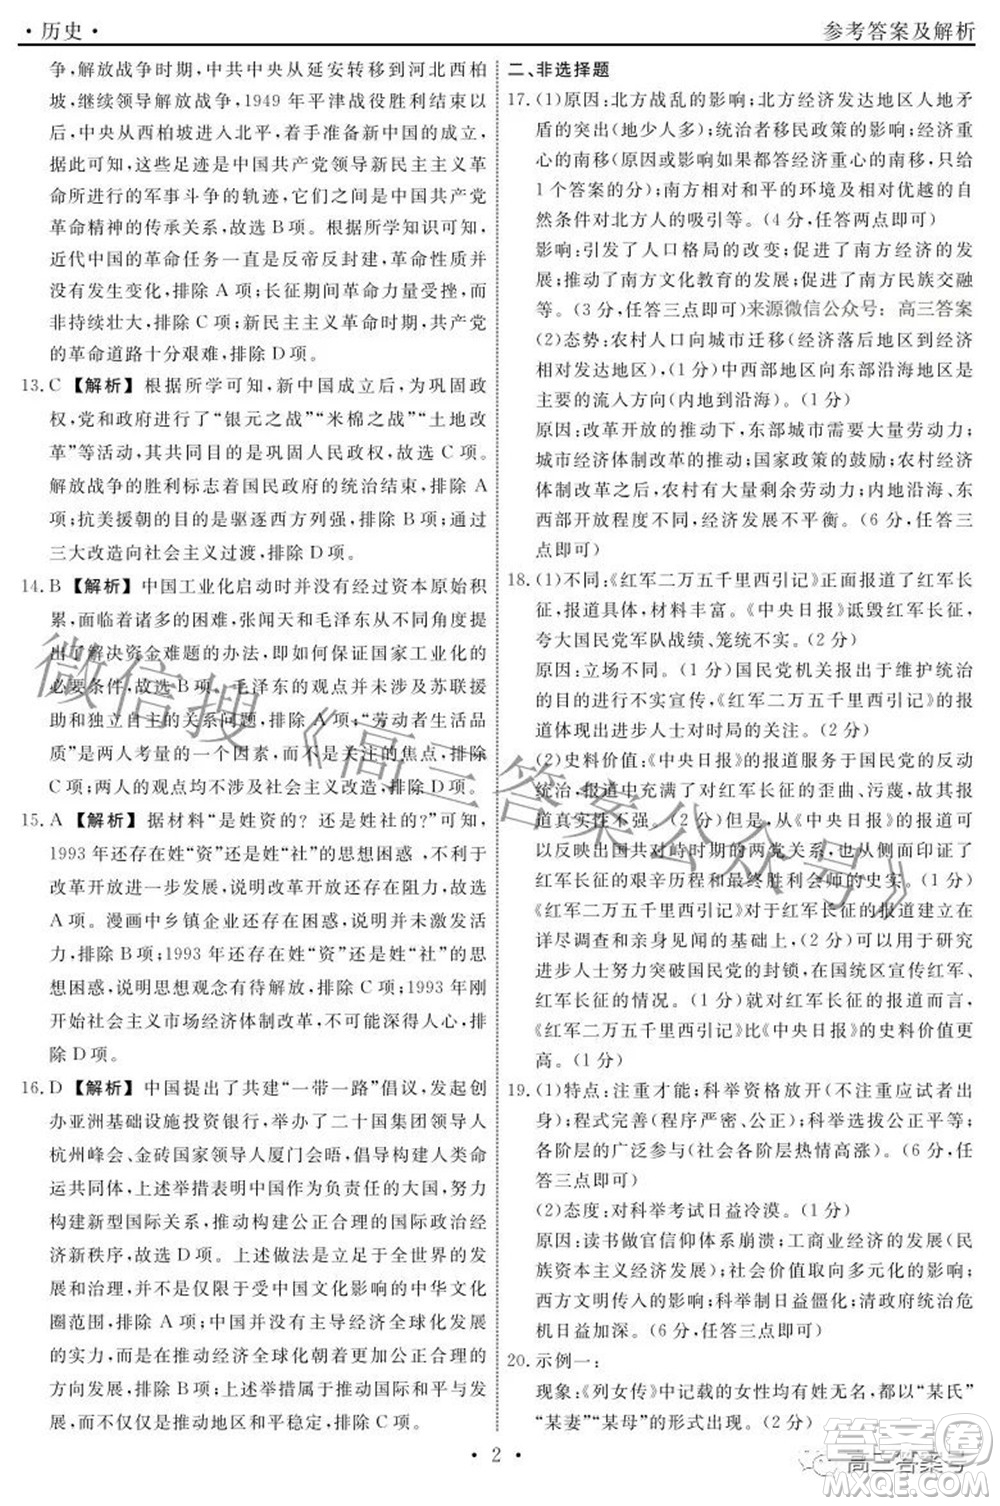 ·历史·
参考答案及解析
争,解放战争时期,中共中央从延安转移到河北西柏
坡,继续领导解放战争,1949 年平津战役胜利结束以
后,中央从西柏坡进入北平,着手准备新中国的成立,
据此可知,这些足迹是中国共产党领导新民主主义革
命所进行的军事斗争的轨迹,它们之间是中国共产党
革命精神的传承关系,故选 B 项。根据所学知识可知,
近代中国的革命任务是反帝反封建,革命性质并
没有发生变化,排除 A 项;长征期间革命力量受挫,而
非持续壮大,排除 C 项;新民主主义革命时期,共产党
的革命道路十分艰难,排除 D 项。
13. C 【解析】根据所学可知,新中国成立后,为巩固政
权,党和政府进行了“银元之战”“米棉之战”“土地改
革”等活动,其共同目的是巩固人民政权,故选 C 项。
解放战争的胜利标志着国民政府的统治结束,排除 A
项;抗美援朝的目的是驱逐西方列强,排除 B 项;通过
三大改造向社会主义过渡,排除 D 项。
14. B 【解析】中国工业化启动时并没有经过资本原始积
累,面临着诸多的困难,张闻天和毛泽东从不同角度提
出了解决资金难题的办法,即如何保证国家工业化的
必要条件,故选 B 项。毛泽东的观点并未涉及苏联援
助和独立自主的关系问题,排除 A 项;“劳动者生活品
质”是两人考量的一个因素,而不是关注的焦点,排除
C 项;两人的观点均不涉及社会主义改造,排除 D 项。
15. A 【解析】据材料“是姓资的?还是姓社的?”可知,
1993 年还存在姓“资”还是姓“社”的思想困惑,不利于
改革开放进一步发展,说明改革开放任重道远,故选
A 项。漫画中乡镇企业还存在困惑,说明并未激发活
力,排除 B 项;1993 年还存在姓“资”还是姓“社”的思
想困惑,说明思想观念有待解放,排除 C 项;1993 年刚
开始社会主义市场经济体制改革,尚未深得人心,排
除 D 项。
16. D 【解析】中国提出了共建“一带一路”倡议,发起创
办亚洲基础设施投资银行,举办了二十国集团领导人
杭州峰会、金砖国家领导人厦门会晤,倡导构建人类命
运共同体,上述举措表明中国作为负责任的大国,努力
构建新型国际关系,推动构建公正合理的国际政治经
济新秩序,故选 D 项。上述做法是立足于全世界的发
展和治理,并不是仅限于受中国文化影响的中华文化
圈范围,排除 A 项;中国重视推动经济全球化,但主要
是意在推动经济全球化朝着更加公正合理的方向发
展,排除 B 项;上述举措有利于推动国际和平与发展,
并不仅仅是推动地区和平稳定,排除 C 项。
二、非选择题
17. (1)原因:北方战乱的影响;北方经济发达地区人地矛
盾的突出(地少人多);统治者移民政策的影响;经济重
心的南移(原因和影响如果都答经济重心的南移,只给
1 个答案的分);南方相对和平的环境及相对优越的自
然条件对北方人的吸引等。(4 分,任答两点即可)
影响:引发了人口格局的改变;促进了南方经济的发
展;推动了南方文化教育的发展;促进了南北民族交融
等。(3 分,任答三点即可)来源微信公众号:高三答案
(2)态势:农村人口向城市迁移(经济落后地区到经济
发达地区),(1 分)中西部地区向东部沿海地区是人口
主要的流入方向(内地到沿海)。(1 分)
原因:改革开放的推动下,东部城市需要大量劳动力;
城市经济体制改革的推动;国家政策的鼓励;农村经济
体制改革的发展,产生大量剩余劳动力;内地沿海、东
西部开放程度不同,经济发展不平衡。(6 分,任答三
点即可)
18. (1)不同:《红军二万五千里西引记》正面报道红军长
征,报道具体,材料丰富。《中央日报》诋毁红军长征,
夸大国民党军队战绩、笼统不实。(2 分)
原因:立场不同。(1 分)国民党机关报出于维护统治
的目的进行不实宣传,《红军二万五千里西引记》的报
道体现进步人士对时局的关注。(2 分)
(2)史料价值:《中央日报》的报道基于国民党的反动
统治,进行大量的对红军长征的歪曲、污蔑,故报道
真实性不强。(2 分)但是可以说明《中央日报》的报道
反映出国共对峙时期的两党关系,从侧面印证了
红军长征的艰辛历程和最终胜利会师的史实。(1 分)
《红军二万五千里西引记》对长征的报道建立在
详尽调查和亲身见闻的基础上,(2 分)可以用于研究
进步人士努力突破国民党的封锁,在国统区宣传红
军长征的情况。(1 分)就对红军长征的研究而言,
《红军二万五千里西引记》比《中央日报》的史料价值更
高。(1 分)
19. (1)特点:注重才能;科举资格放开(不注重应试者出
身);程式完善(程序严密、公正);科举选拔公正平等;
各阶层的广泛参与(社会各阶层热情高涨)。(6 分,任
答三点即可)
(2)态度:对科举考试日益冷漠。(1 分)
原因:读书做官信仰体系崩溃;工商业经济的发展(民
族资本主义经济发展);社会价值取向多元化的影响;
西方文明传入的影响;科举制日益僵化;清政府统治危
机日益加深。(6 分,任答三点即可)
20. 示例一:
现象:《列女传》中记载的女性均有姓无名,都以“某氏”
“某妻”“某母”的形式出现。(2 分)
微信搜《高三答案公众号》
· 2 ·
高三答案号
答案圈
MXQE.COM